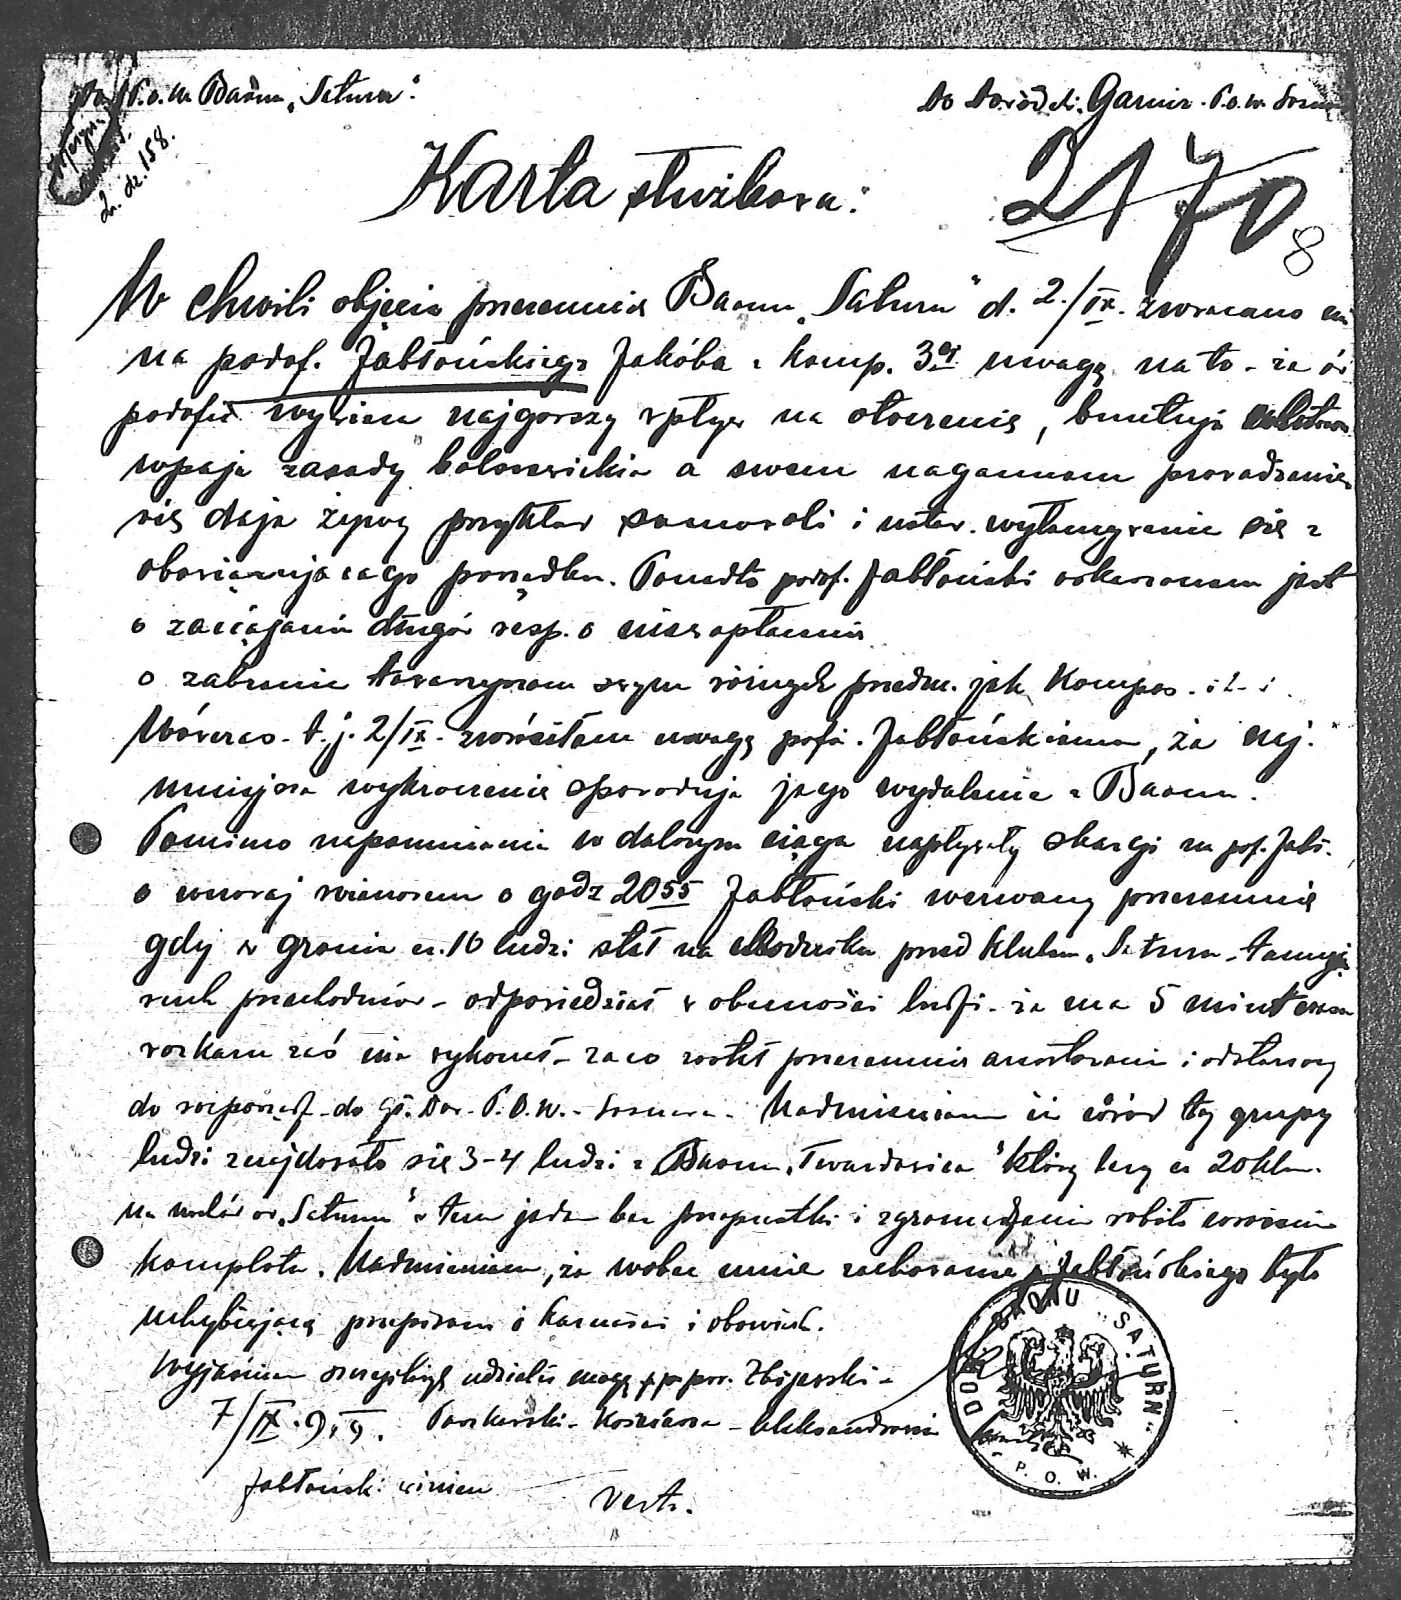 P.o.w. Baonu „Saturn".
Do Dowódz. Garniz. P.o.w. Sosno
L. dz. 158.
Karta służbowa:
2170
8
W chwili objęcia przezemnie Baonu „Saturn" d. 2./IX. zwracano mi
na podof. Jabłońskiego Jakóba z komp. 3ej uwagę na to - że ów
podofic wywiera najgorszy wpływ na otoczenie, buntuje
wpaja zasady bolszewickie a swem nagannem prowadzeniem
się daje żywy przykład samowoli i ustaw. wyłamywania się z
obowiązującego porządku. Ponadto podof. Jabłoński oskarżonem jest
o zaciąganie długów resp. o niezapłacenie
o zabranie towarzyszom swym różnych przedm. jak kompas - i t - i
Wówczas - t. j. 2/IX - zwróciłem uwagę pofo. Jabłońskiemu, że naj.
mniejsze wykroczenie spowoduje jego wydalenie z Baonu.
Pomimo napomnienia w dalszym ciągu napływały skargi na pof. Jabł.
o wczoraj wieczorem o godz 2055 Jabłoński wezwany przezemnie
gdy w gronie cz. 10 ludzi stał na chodniku przed klubem „Saturn - tamując
ruch przechodniów - odpowiedział w obecności ludzi - że ma 5 minut czasu
rozkazu zaś nie wykonał - zaco został przezemnie aresztowany i odstawiony
do rozporządz - do Gł. Dow - P.O.W. - Sosnow - Nadmieniam iż wśród tej grupy
ludzi znajdowało się 3-4 ludzi z Baonu „Twardowice" który leży cz 20 klm.
na wschód od „Saturnu" w tem jeden bez przepustki i zgromadzenie robiło wrażenie
komplotu. Nadmieniam, że wobec mnie zachowanie p Jabłońskiego było
uchybiającą przepisom o karności i obowiązk.
Wyjaśnień szczegółowych udzielić mogą p. por. Zbijewski -
7/IX. 9.19. Paszkowski - Koszczowa - Aleksandrowicz
DOW. BAONU „SATURN" P. O. W.
Jabłoński winien
Vert.